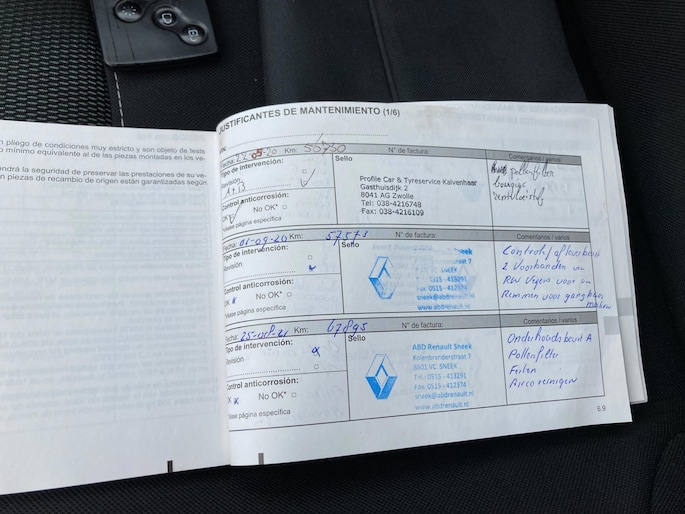 n pliego de condiciones muy estricto y son objeto de tests
o mínimo equivalente al de las piezas montadas en los ve-
endrá la seguridad de preservar las prestaciones de su ve-
n piezas de recambio de origen están garantizadas según
JUSTIFICANTES DE MANTENIMIENTO (1/6)
Fecha: 22-05-20 Km: 50750 N° de factura: Comentarios / varios
Tipo de intervención: Sello
Revisión
A+B
Control anticorrosión:
OK No OK*
*Véase página específica
Profile Car & Tyreservice Kalvenhaar
Gasthuisdijk 2
8041 AG Zwolle
Tel: 038-4216748
Fax: 038-4216109
pollenfilter
bougies
remvloeistof
Fecha: 01-09-20 Km: 57573 N° de factura: Comentarios / varios
Tipo de intervención: Sello
Revisión
Control anticorrosión:
OK x No OK*
*Véase página específica
Sneek
SNEEK
sneek@abdrenault.nl
www.abdrenault.nl
Controle/afleverbeurt
2 Voorbanden
Remmen voor gangbaar
maken
Fecha: 25-08-21 Km: 67895 N° de factura: Comentarios / varios
Tipo de intervención: x Sello
Revisión
Control anticorrosión:
OK x No OK*
*Véase página específica
ABD Renault Sneek
Kolenbranderstraat 7
8601 VC SNEEK
Tel.: 0515 - 413291
Fax: 0515 - 412374
sneek@abdrenault.nl
www.abdrenault.nl
Onderhoudsbeurt A
Pollenfilter
Airco reinigen
6.9